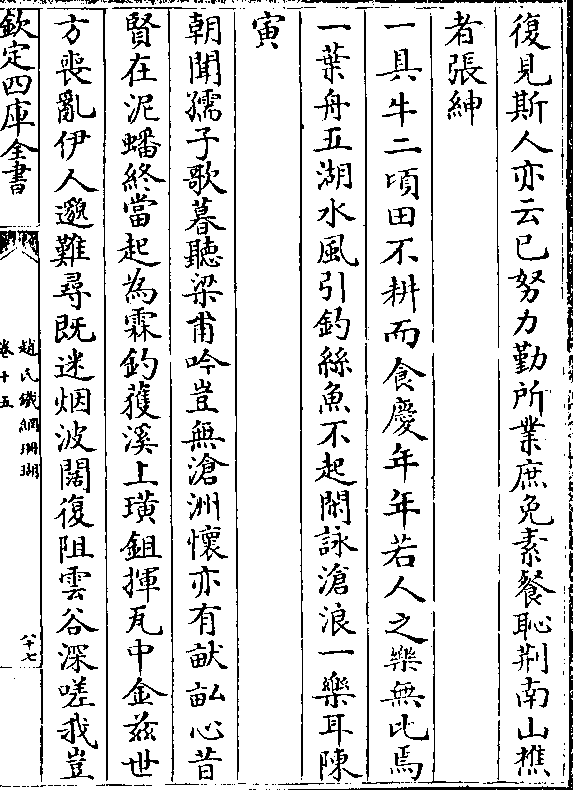 復見斯人亦云已努力勤所業庶免素餐恥荆南山樵
者張紳
一具牛二頃田不耕而食慶年年若人之樂無比焉
一葉舟五湖水風引釣絲魚不起閑詠滄浪一樂耳陳
寅
朝聞孺子歌暮聽梁甫吟豈無滄洲懷亦有畎畝心昔
賢在泥蟠終當起為霖釣獲溪上璜鉏揮瓦中金兹世
方喪亂伊人邈難尋既迷烟波闊復阻雲谷深嗟我豈
欽定四庫全書
趙氏鐵網珊瑚
卷十五
八十七